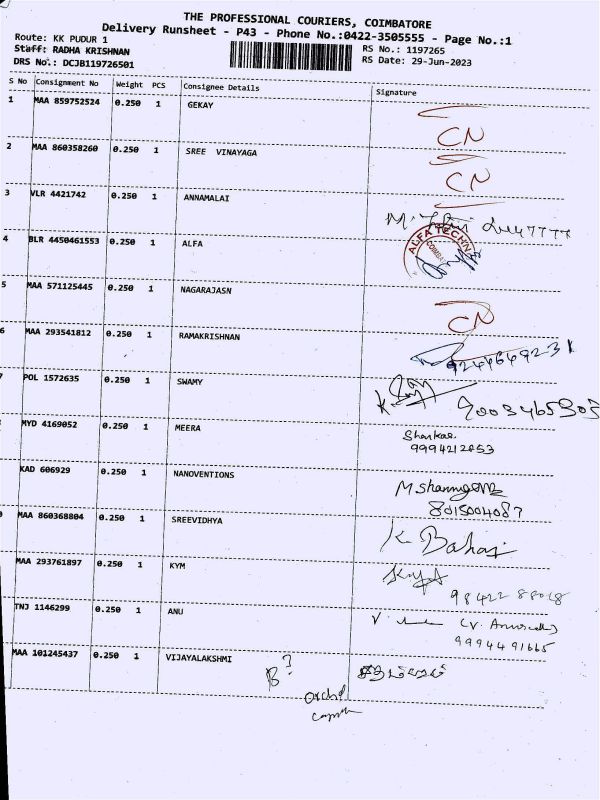 THE PROFESSIONAL COURIERS, COIMBATORE
Delivery Runsheet - P43 - Phone No.:0422-3505555 - Page No.:1
Route: KK PUDUR 1
RS No.: 1197265
Staff: RADHA KRISHNAN
RS Date: 29-Jun-2023
DRS No.: DCJB119726501
S No Consignment No Weight PCS Consignee Details Signature
1 MAA 859752524 0.250 1 GEKAY
CN
2 MAA 860358260 0.250 1 SREE VINAYAGA
CN
3 VLR 4421742 0.250 1 ANNAMALAI
4 BLR 4450461553 0.250 1 ALFA
ALFA TECHN
5 MAA 571125445 0.250 1 NAGARAJASN
CN
6 MAA 293541812 0.250 1 RAMAKRISHNAN
POL 1572635 0.250 1 SWAMY
9003465305
MYD 4169052 0.250 1 MEERA
Shankar.
9994212853
KAD 606929 0.250 1 NANOVENTIONS
8015004087
MAA 860368804 0.250 1 SREEVIDHYA
MAA 293761897 0.250 1 KYM
98422 88018
TNJ 1146299 0.250 1 ANU
9994491665
MAA 101245437 0.250 1 VIJAYALAKSHMI
B?
orchid